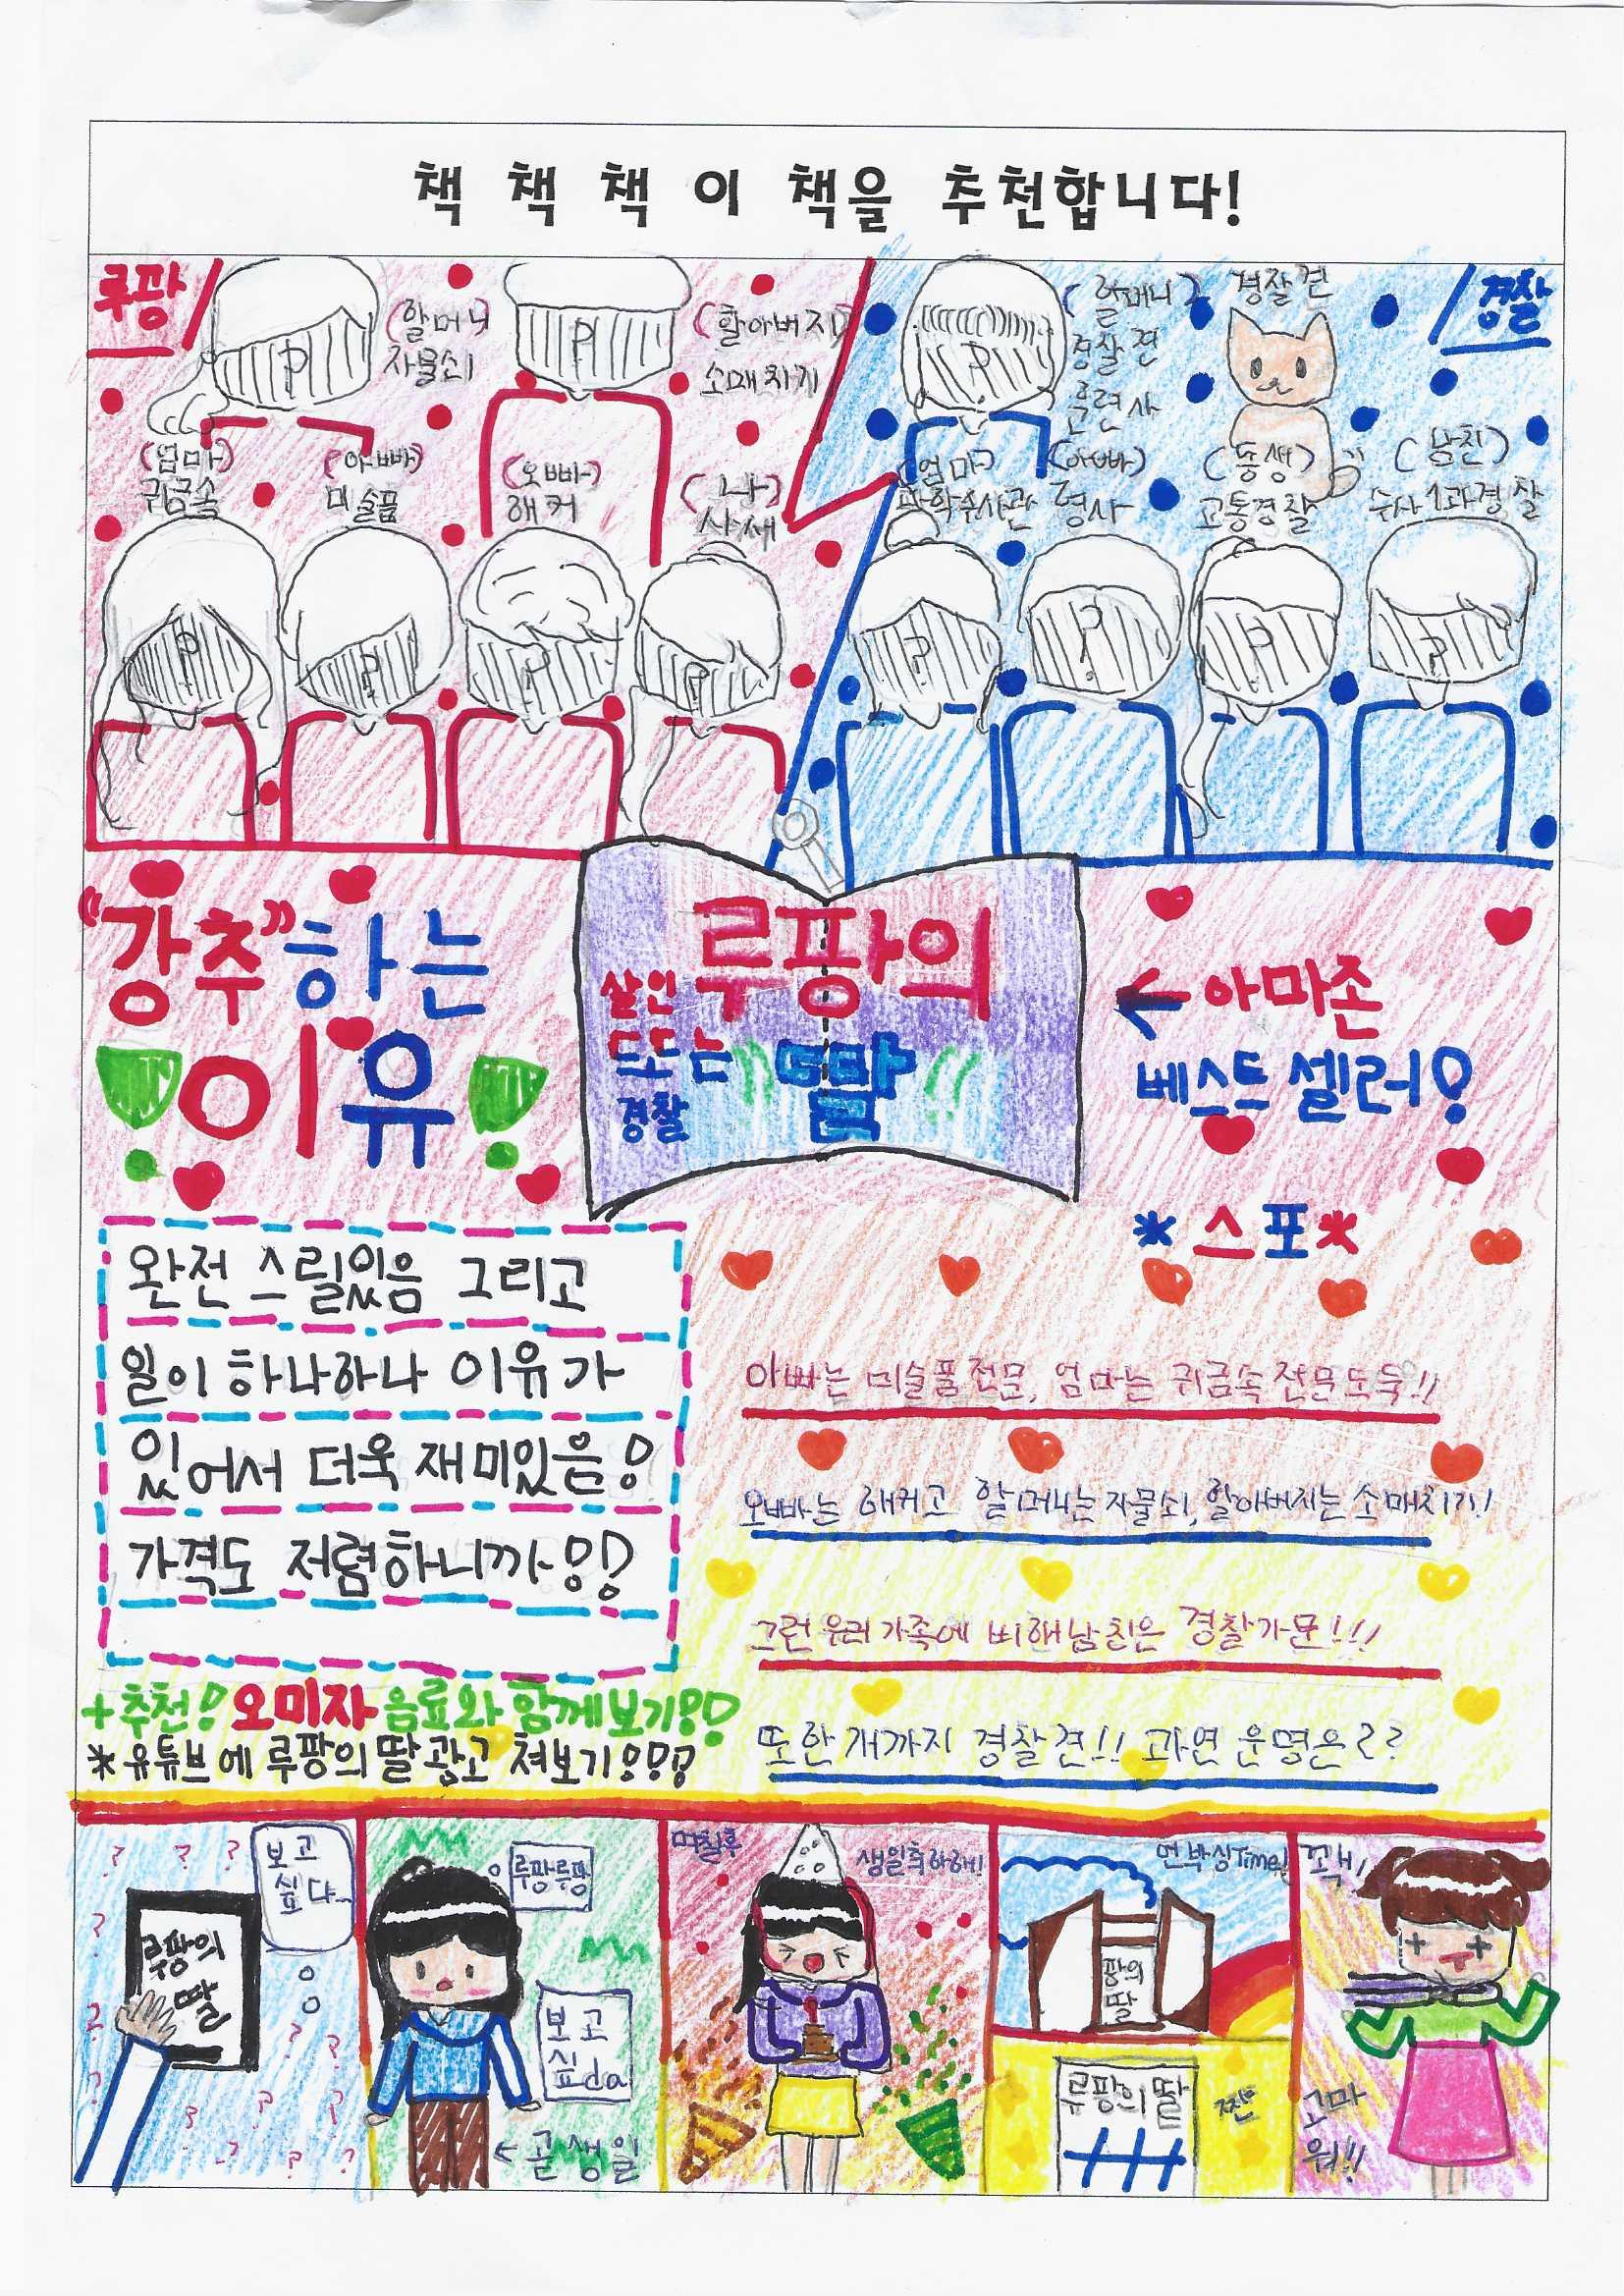 책 책 책 이 책을 추천합니다!
루팡
(할머니)
자물쇠
(할아버지)
소매치기
(할머니)
경찰견
훈련사
경찰견
경찰
(엄마)
귀금속
(아빠)
미술품
(오빠)
해커
(나)
사세
(엄마)
과학수사관
(아빠)
형사
(동생)
교통경찰
(남친)
수사1과경찰
"강추"하는
이유!
루팡의
딸
살인
또는
경찰
←아마존
베스트셀러!
*스포*
완전 스릴있음 그리고
일이 하나하나 이유가
있어서 더욱 재미있음!
가격도 저렴하니까!!
+추천! 오미자 음료와 함께보기!!
*유튜브에 루팡의 딸 광고 쳐보기!!!
아빠는 미술품전문, 엄마는 귀금속전문도둑!!
오빠는 해커고 할머니는 자물쇠, 할아버지는 소매치기!
그런 우리 가족에 비해 남친은 경찰가문!!!
또한 개까지 경찰견!! 과연 운명은??
보고
싶다...
루팡의
딸
루팡루팡
보고
싶da
←곧생일
며칠후
생일축하해!
언박싱Time!
루팡의
딸
루팡의 딸
짠
꽥!
고마
워!!